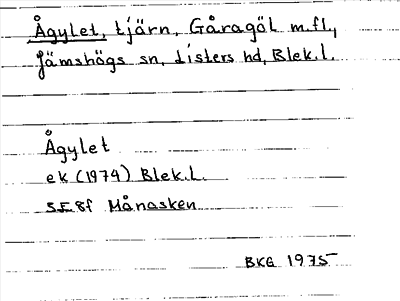 Ågylet, tjärn, Gåragöl m.fl.,
Jämshögs sn, Listers hd, Blek.l.
Ågylet
ek (1974) Blek.l.
3E8f Månasken
BKG 1975